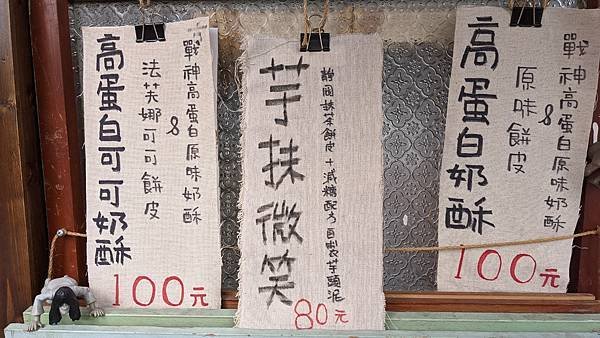 戰神高蛋白原味奶酥
&
原味餅皮
高蛋白奶酥
100元
靜岡抹茶餅皮+減糖配方自製芋頭泥
芋抹微笑
80元
戰神高蛋白原味奶酥
&
法芙娜可可餅皮
高蛋白可可奶酥
100元